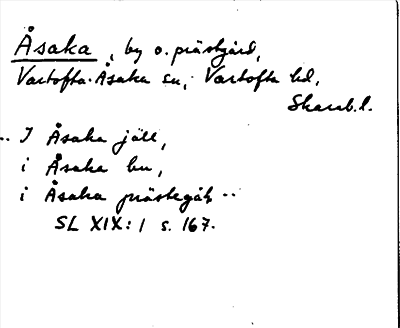 Åsaka, by o. prästgård,
Vartofta-Åsaka sn, Vartofta hd,
Skarab.l.
.. I Åsaka jäll,
i Åsaka bu,
i Åsaka prästegåh ..
SL XIX:1 s. 167.